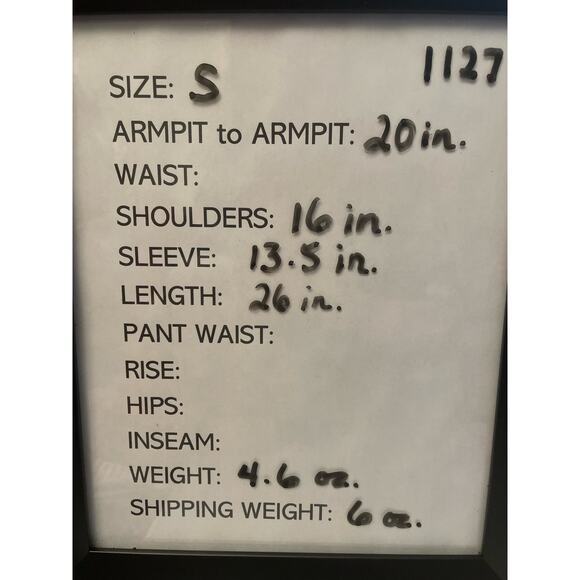 1127
SIZE: S
ARMPIT to ARMPIT: 20 in.
WAIST:
SHOULDERS: 16 in.
SLEEVE: 13.5 in.
LENGTH: 26 in.
PANT WAIST:
RISE:
HIPS:
INSEAM:
WEIGHT: 4.6 oz.
SHIPPING WEIGHT: 6 oz.